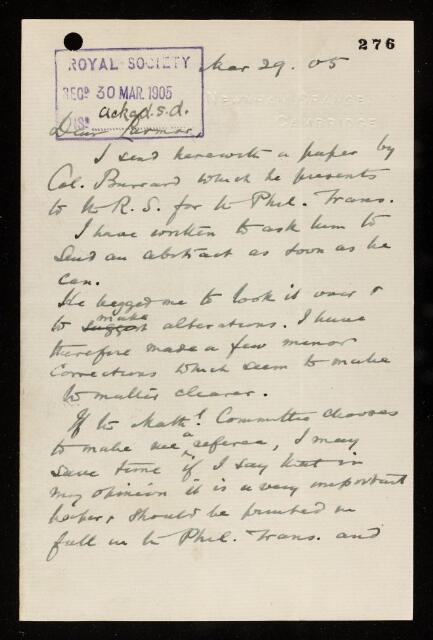 276
ROYAL SOCIETY
RECD 30 MAR. 1905
ackd. s.d.
Mar 29. 05
NEWNHAM GRANGE,
CAMBRIDGE.
Dear Larmor,
I send herewith a paper by
Col. Burrard which he presents
to the R.S. for the Phil. Trans.
I have written to ask him to
send an abstract as soon as he
can.
He begged me to look it over &
to suggest make alterations. I have
therefore made a few minor
corrections which seem to make
the matter clearer.
If the Math! Committee chooses
to make me a referee, I may
save time if I say that in
my opinion it is a very important
paper, & should be printed in
full in the Phil. Trans. and